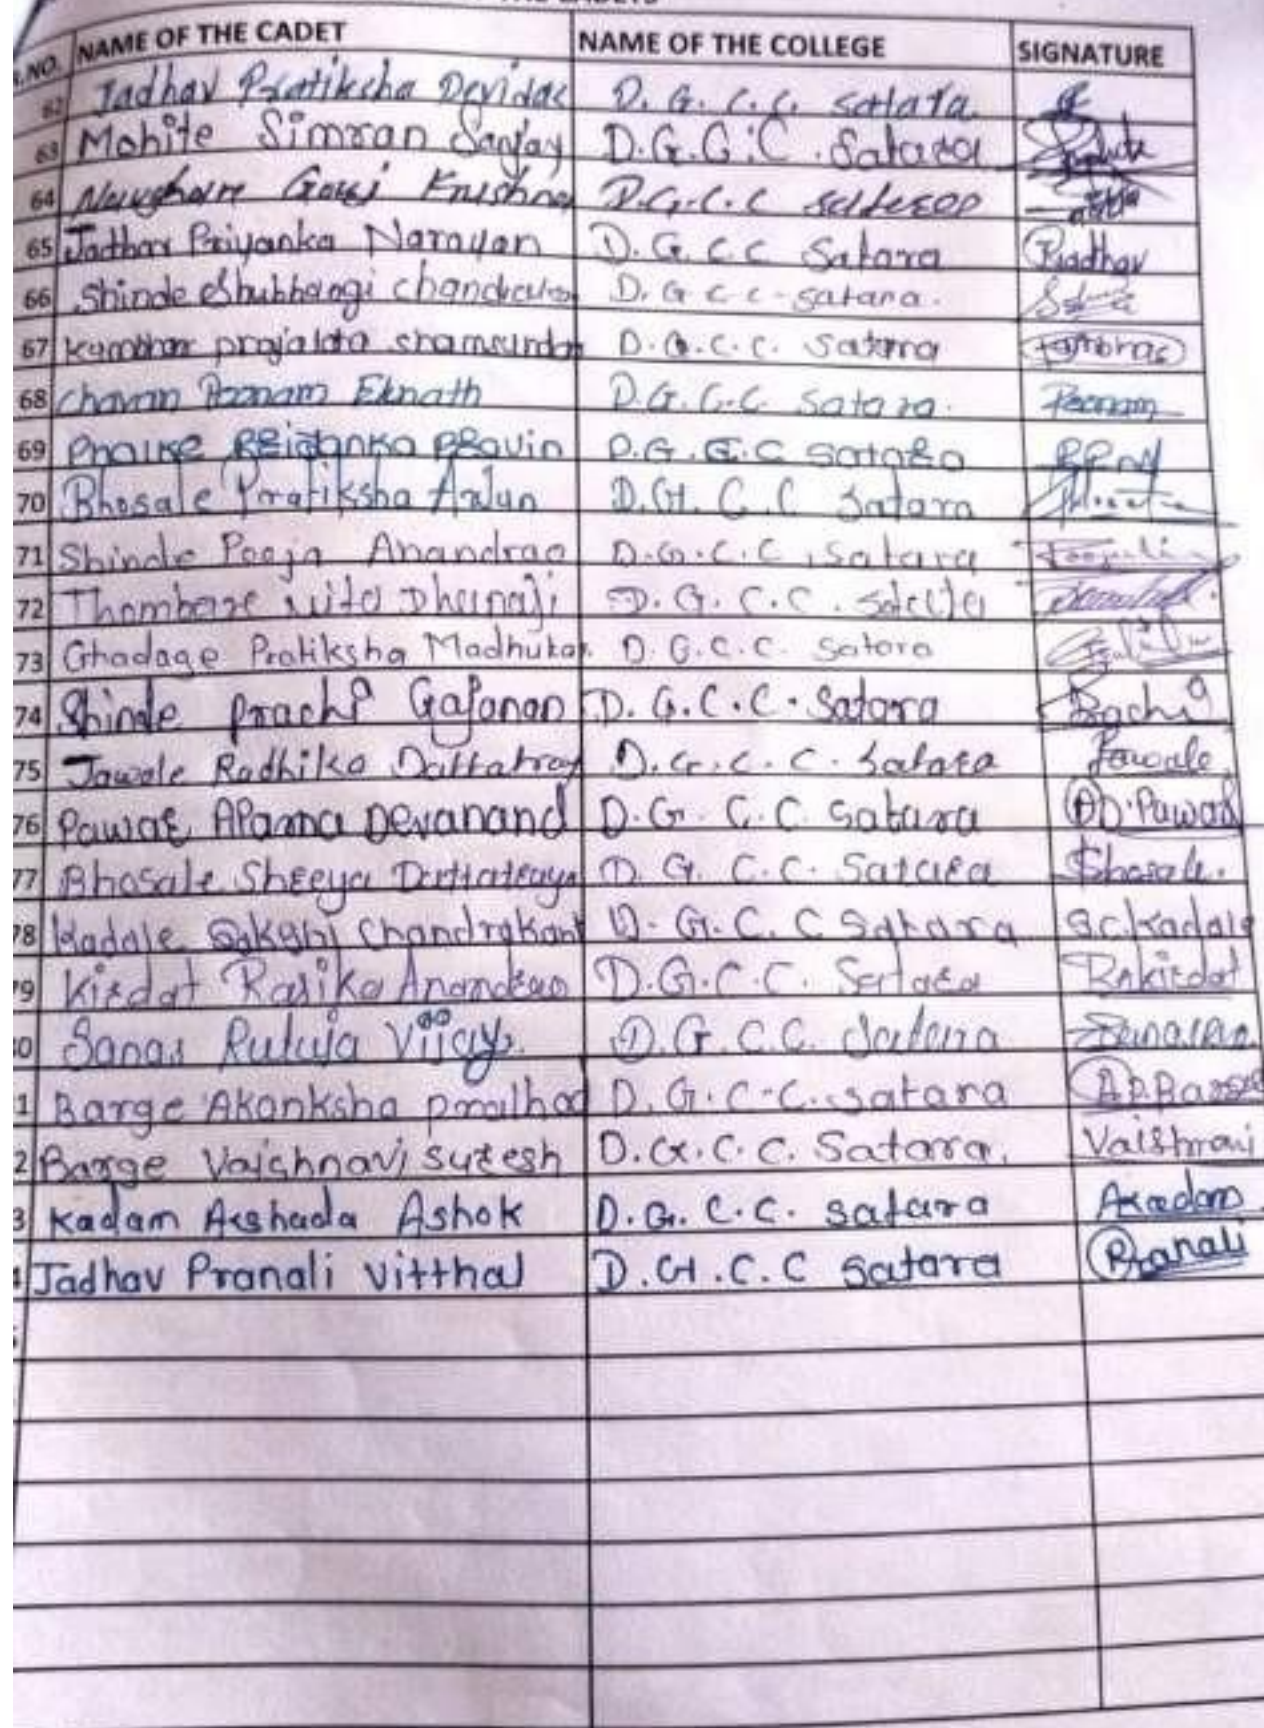 NAME OF THE CADET NAME OF THE COLLEGE SIGNATURE
62 Jadhav Pratiksha Devidas D. G. C. C. Satara
63 Mohite Simran Sanjay D.G.C.C. Satara
64 Gouri Krishna D.G.C.C
65 Jadhav Priyanka Narayan D.G.C.C Satara PJadhav
66 Shinde Shubhangi D.G.C.C. Satara.
67 Kumbhar prajakta shamsundar D.G.C.C. Satara
68 Chavan Poonam Eknath D.G.C.C Satara. Poonam
69 PRavin D.G.C.C Satara
70 Bhosale Pratiksha Arjun D.G.C.C Satara
71 Shinde Pooja Anandrao D.G.C.C. Satara
72 Thombare Dhanaji D.G.C.C. Satara
73 Ghadage Pratiksha Madhukar. D.G.C.C. Satara
74 Shinde prachi Gajanan D.G.C.C. Satara Prachi
75 Jawale Radhika Dattatray D.G.C.C. Satara Jawale
76 Pawar Aparna Devanand D.G.C.C. Satara AD.Pawar
77 Bhosale Shreya Dattatraya D.G.C.C. Satara Bhosale.
78 Kadale Sakshi Chandrakant D.G.C.C Satara S.C.Kadale
79 Kirdat Rasika Anandrao D.G.C.C. Satara RAKirdat
0 Sanas Rutuja Vijay. D.G.C.C. Satara
1 Barge Akanksha pralhad D.G.C.C. satara A.P.Barge
2 Barge Vaishnavi suresh D.G.C.C. Satara. Vaishnavi
3 Kadam Arshada Ashok D.G.C.C. satara Akadam
Jadhav Pranali Vitthal D.G.C.C Satara Pranali